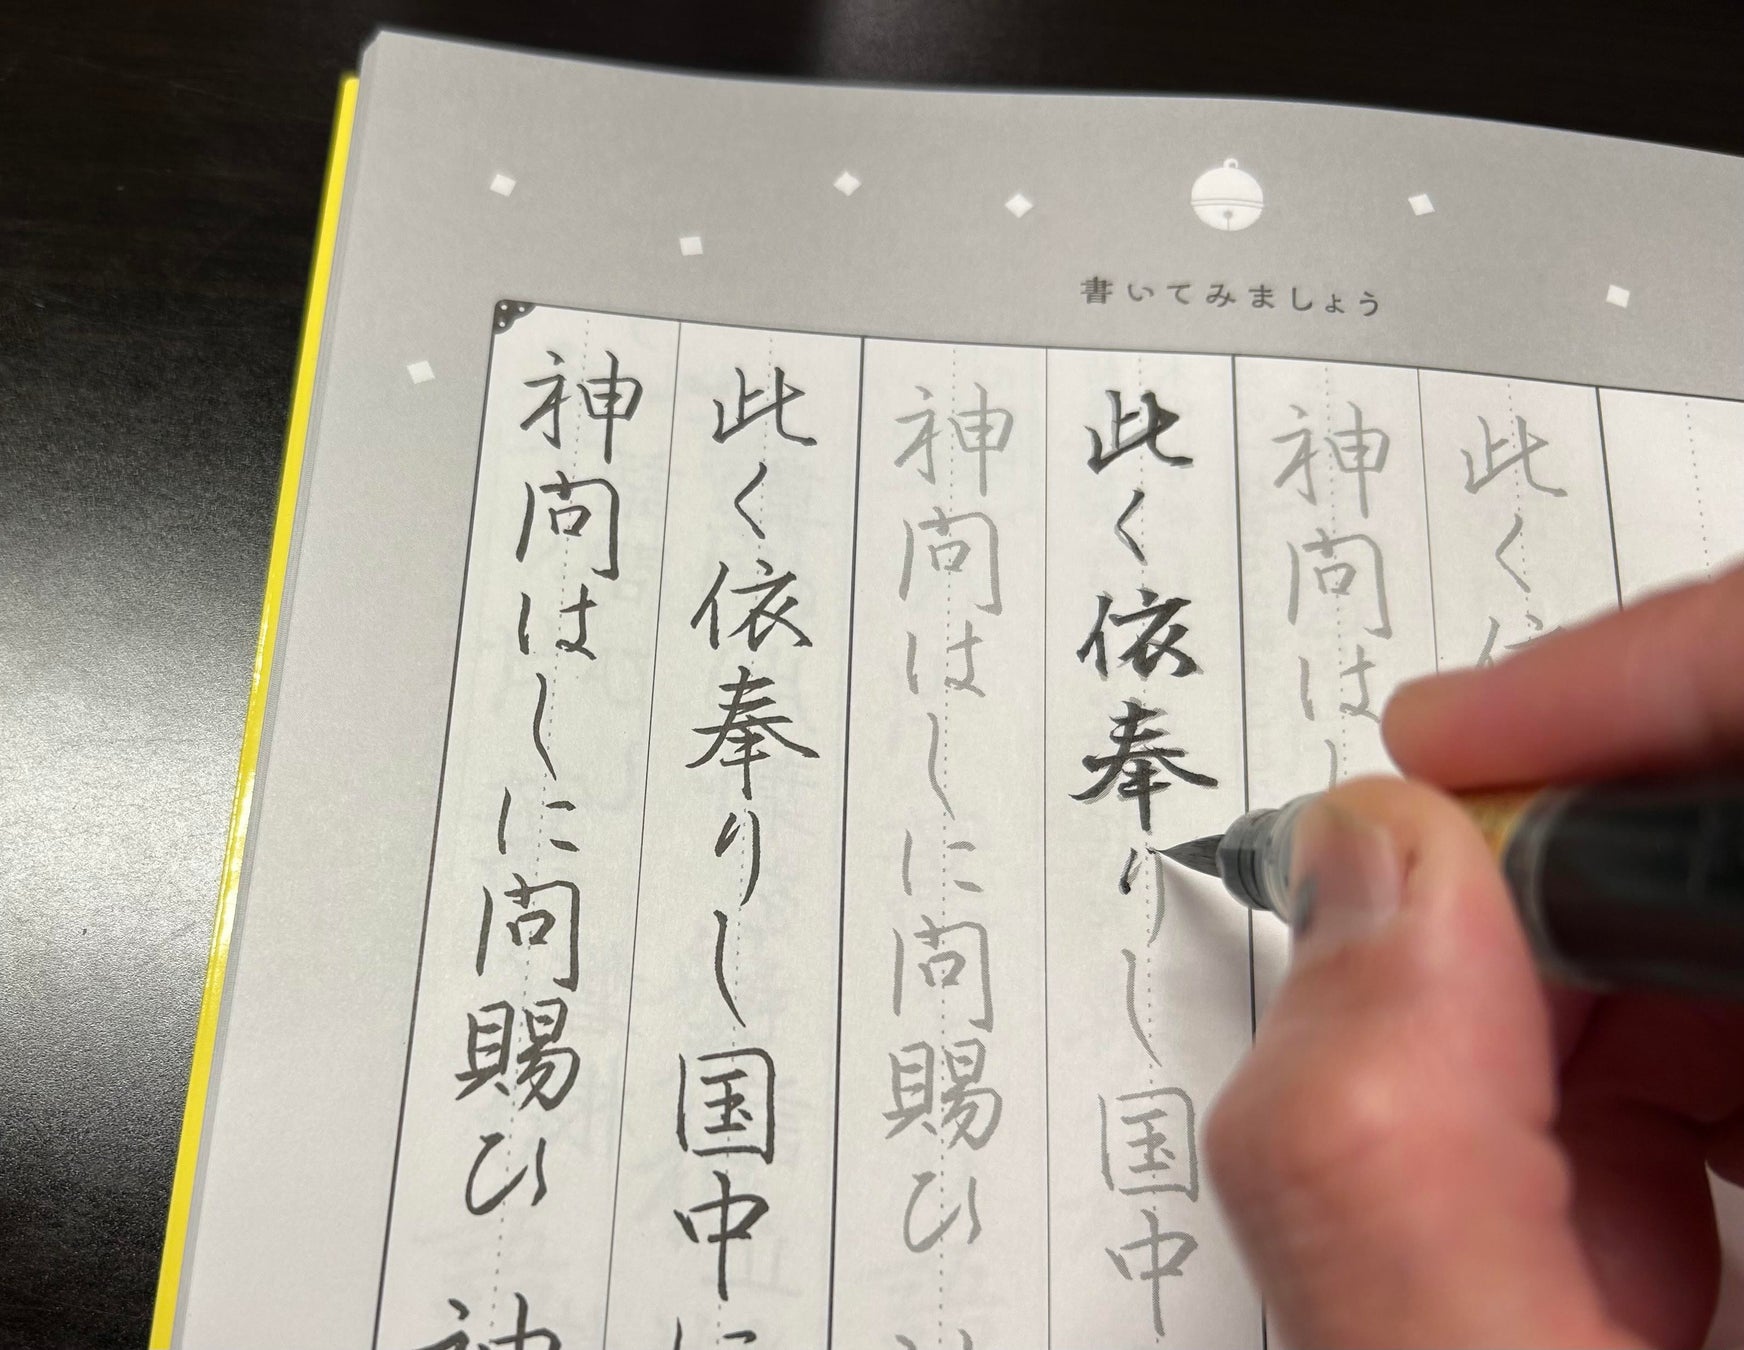 書いてみましょう
此く
神問は
此く依奉りし国中
神問はしに問賜ひ
此く依奉りし国中に
神問はしに問賜ひ神